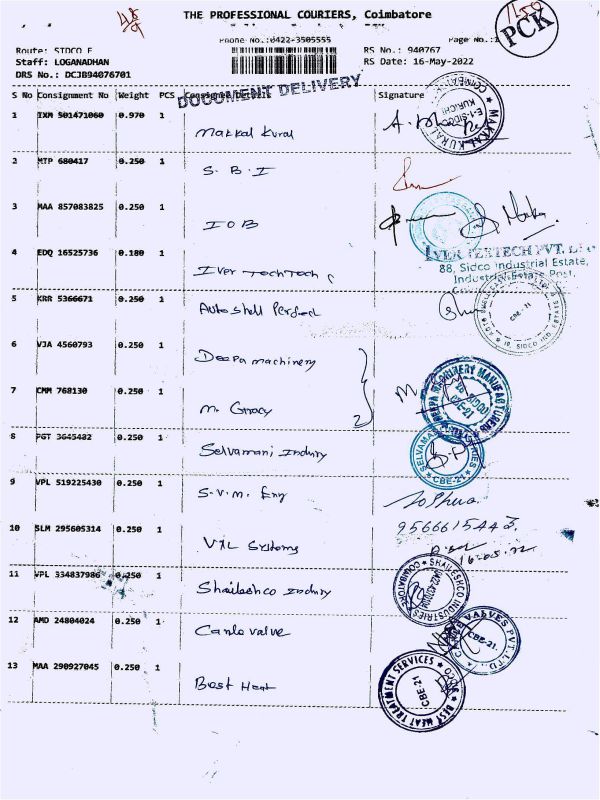 THE PROFESSIONAL COURIERS, Coimbatore
Phone No.:0422-3505555
1150
PCK
Route: SIDCO E
RS No.: 940767
Page No.:1
Staff: LOGANADHAN
RS Date: 16-May-2022
DRS No.: DCJB94076701
DOCUMENT DELIVERY
S No Consignment No Weight PCS Consignee Details Signature
1 IXM 501471060 0.970 1 Makkal Kural
2 MTP 680417 0.250 1 S.B.I
3 MAA 857083825 0.250 1 IOB
4 EDQ 16525736 0.180 1 Iver TechTech
IVER TEXTECH PVT. LTD
88, Sidco Industrial Estate,
Industrial Estate Post,
5 KRR 5366671 0.250 1 Autoshell Perfect
6 VJA 4560793 0.250 1 Deepa machinery
7 CMM 768130 0.250 1 M.
8 PGT 3645482 0.250 1 Selvamani Indury
9 VPL 519225430 0.250 1 S.V.M. Eng
10 SLM 295605314 0.250 1 VXL Systems
16.05.22
11 VPL 334837986 0.250 1 Shaileshco Indury
SHAILESHCO INDUSTRIES
12 AMD 24804024 0.250 1 Canlo valve
VALVES PVT. LTD.
CBE-21.
13 MAA 290927045 0.250 1 Best Heat
BEST HEAT TREATMENT SERVICES
CBE-21